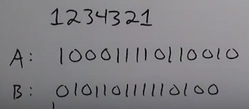 1234321
A: 100011110110010
B: 010110111110100